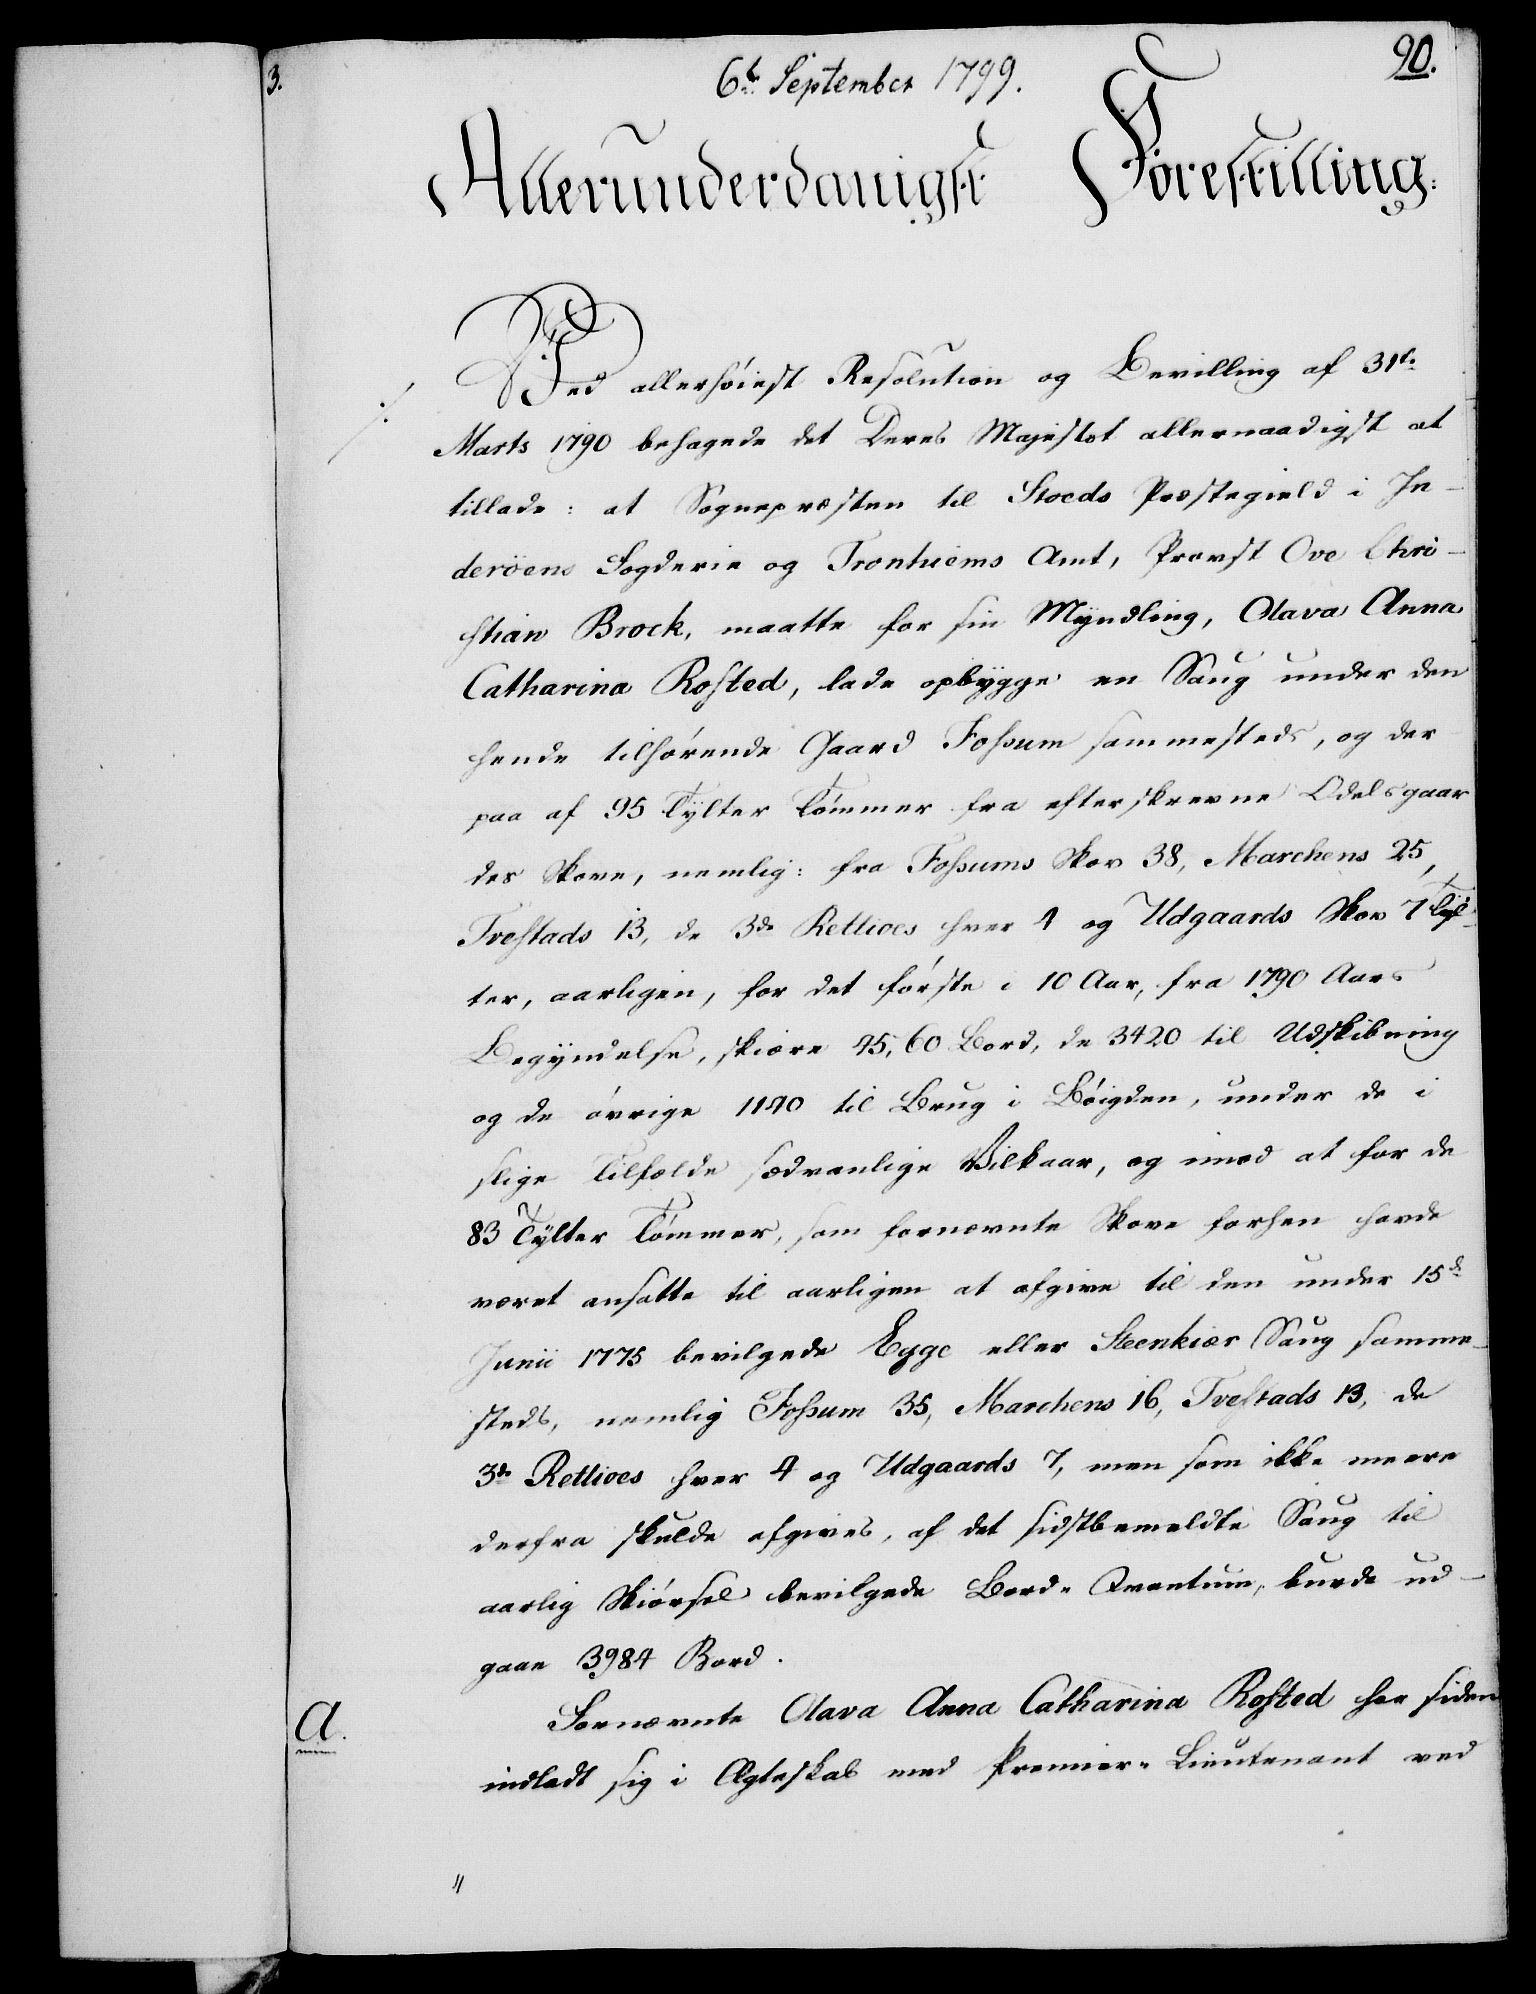 3.
6t. September 1799.
90.
Allerunderdanigst Forestilling.
Ved allerhöiest Resolution og Bevilling af 31t.
Marts 1790 behagede det Deres Majestet allernaadigst at
tillade: at Sognepræsten til Stoeds Præstegield i In-
deröens Fogderie og Tronhiems Amt, Provst Ove Chri-
stian Brock, maatte for sin Myndling, Olava Anna
Catharina Rosted, lade opbygge en Saug under den
hende tilhörende Gaard Fossum sammesteds, og der
paa af 95 Tylter Tömmer fra efterskrevne Odelsgaar
des Skove, nemlig: fra Fossums Skov 38, Marchens 25,
Tvestads 13, de 3de Rettioes hver 4 og Udgaards Skov 7 Tyl-
ter, aarligen, for det förste i 10 Aar, fra 1790 Aars
Begyndelse, skiære 45,60 Bord, de 3420 til Udskibning
og de övrige 1140 til Brug i Böigden, under de i
slige Tilfælde sædvanlige Vilkaar, og imod at for de
83 Tylter Tömmer, som fornævnte Skove forhen havde
været ansatte til aarligen at afgive til den under 15d.
Junii 1775 bevilgede Egge eller Steenkiær Saug samme-
steds, nemlig Fossum 35, Marchens 16, Tvestads 13, de
3de Rettioes hver 4 og Udgaards 7, men som ikke meere
derfra skulde afgives, af det sidstbemeldte Saug til
aarlig Skiörsel bevilgede Bord-Qvantum, burde ud-
gaae 3984 Bord.
A.
Fornævnte Olava Anna Catharina Rosted har siden
indladt sig i Ægteskab med Premier-Lieutenant ved